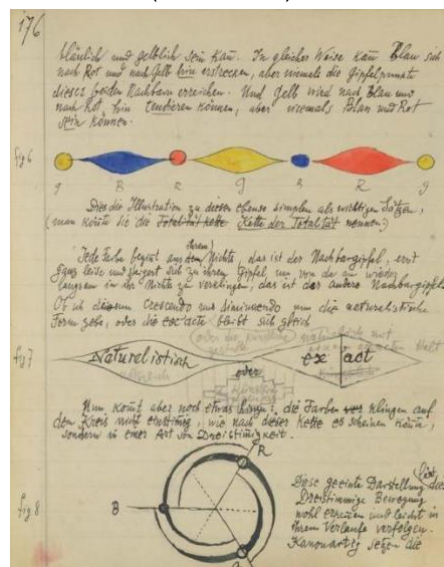 176
bläulich und gelblich sein kann. In gleicher Weise kann Blau sich
nach Rot und nach Gelb hin erstrecken, aber niemals die Gipfelpunkte
dieser beiden Nachbarn erreichen. Und Gelb wird nach Blau und
nach Rot hin tendieren können, aber niemals Blau und Rot
sein können.
fig 6
g B R g B R g
Dies die Illustration zu diesen ebenso simplen als wichtigen Sätzen,
(man könnte sie die Totalität Kette Kette der Totalität nennen)
Jede Farbe beginnt aus ihrem Nichts, das ist der Nachbargipfel, erst
ganz leise und steigert sich zu ihrem Gipfel, um von da an wieder
langsam in ihr Nichts zu verklingen, das ist der andere Nachbargipfel.
Ob ich diesem Crescendo und diminuendo nun die naturalistische
Form gebe, oder die exacte bleibt sich gleich
fig 7
Naturalistisch oder exact
Nun kommt aber noch etwas hinzu: die Farben klingen auf
dem Kreis nicht einstimmig, wie nach dieser Kette es scheinen könnte,
sondern in einer Art von Dreistimmigkeit.
fig 8
R
B
Diese geeinte Darstellung lässt die
Dreistimmige Bewegung
wohl erkennen und leicht in
ihrem Verlaufe verfolgen.
Kanonartig setzen die